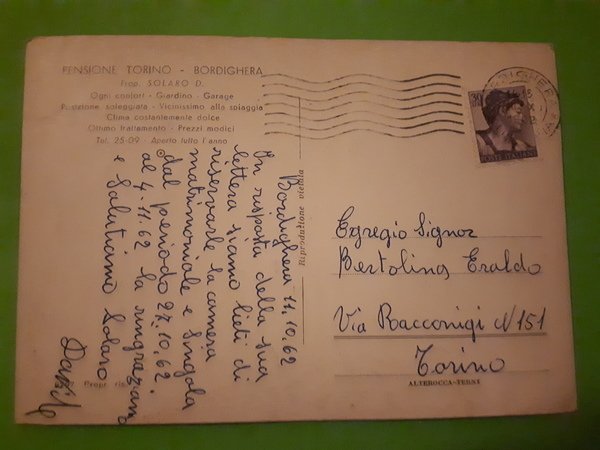 PENSIONE TORINO - BORDIGHERA
Prop. SOLARO D.
Ogni confort - Giardino - Garage
Posizione soleggiata - Vicinissimo alla spiaggia
Clima costantemente dolce
Ottimo trattamento - Prezzi modici
Tel. 25-09 - Aperto tutto l'anno
Bordighera 11.10.62
In risposta della sua
lettera siamo lieti di
riservarle la camera
matrimoniale e singola
dal periodo 27.10.62.
al 4.11.62 la ringraziamo
e Salutiamo Solaro
Riproduzione vietata
POSTE ITALIANE
Egregio Signor
Bertolina Eraldo
Via Racconigi N 151
Torino
ALTEROCCA-TERNI